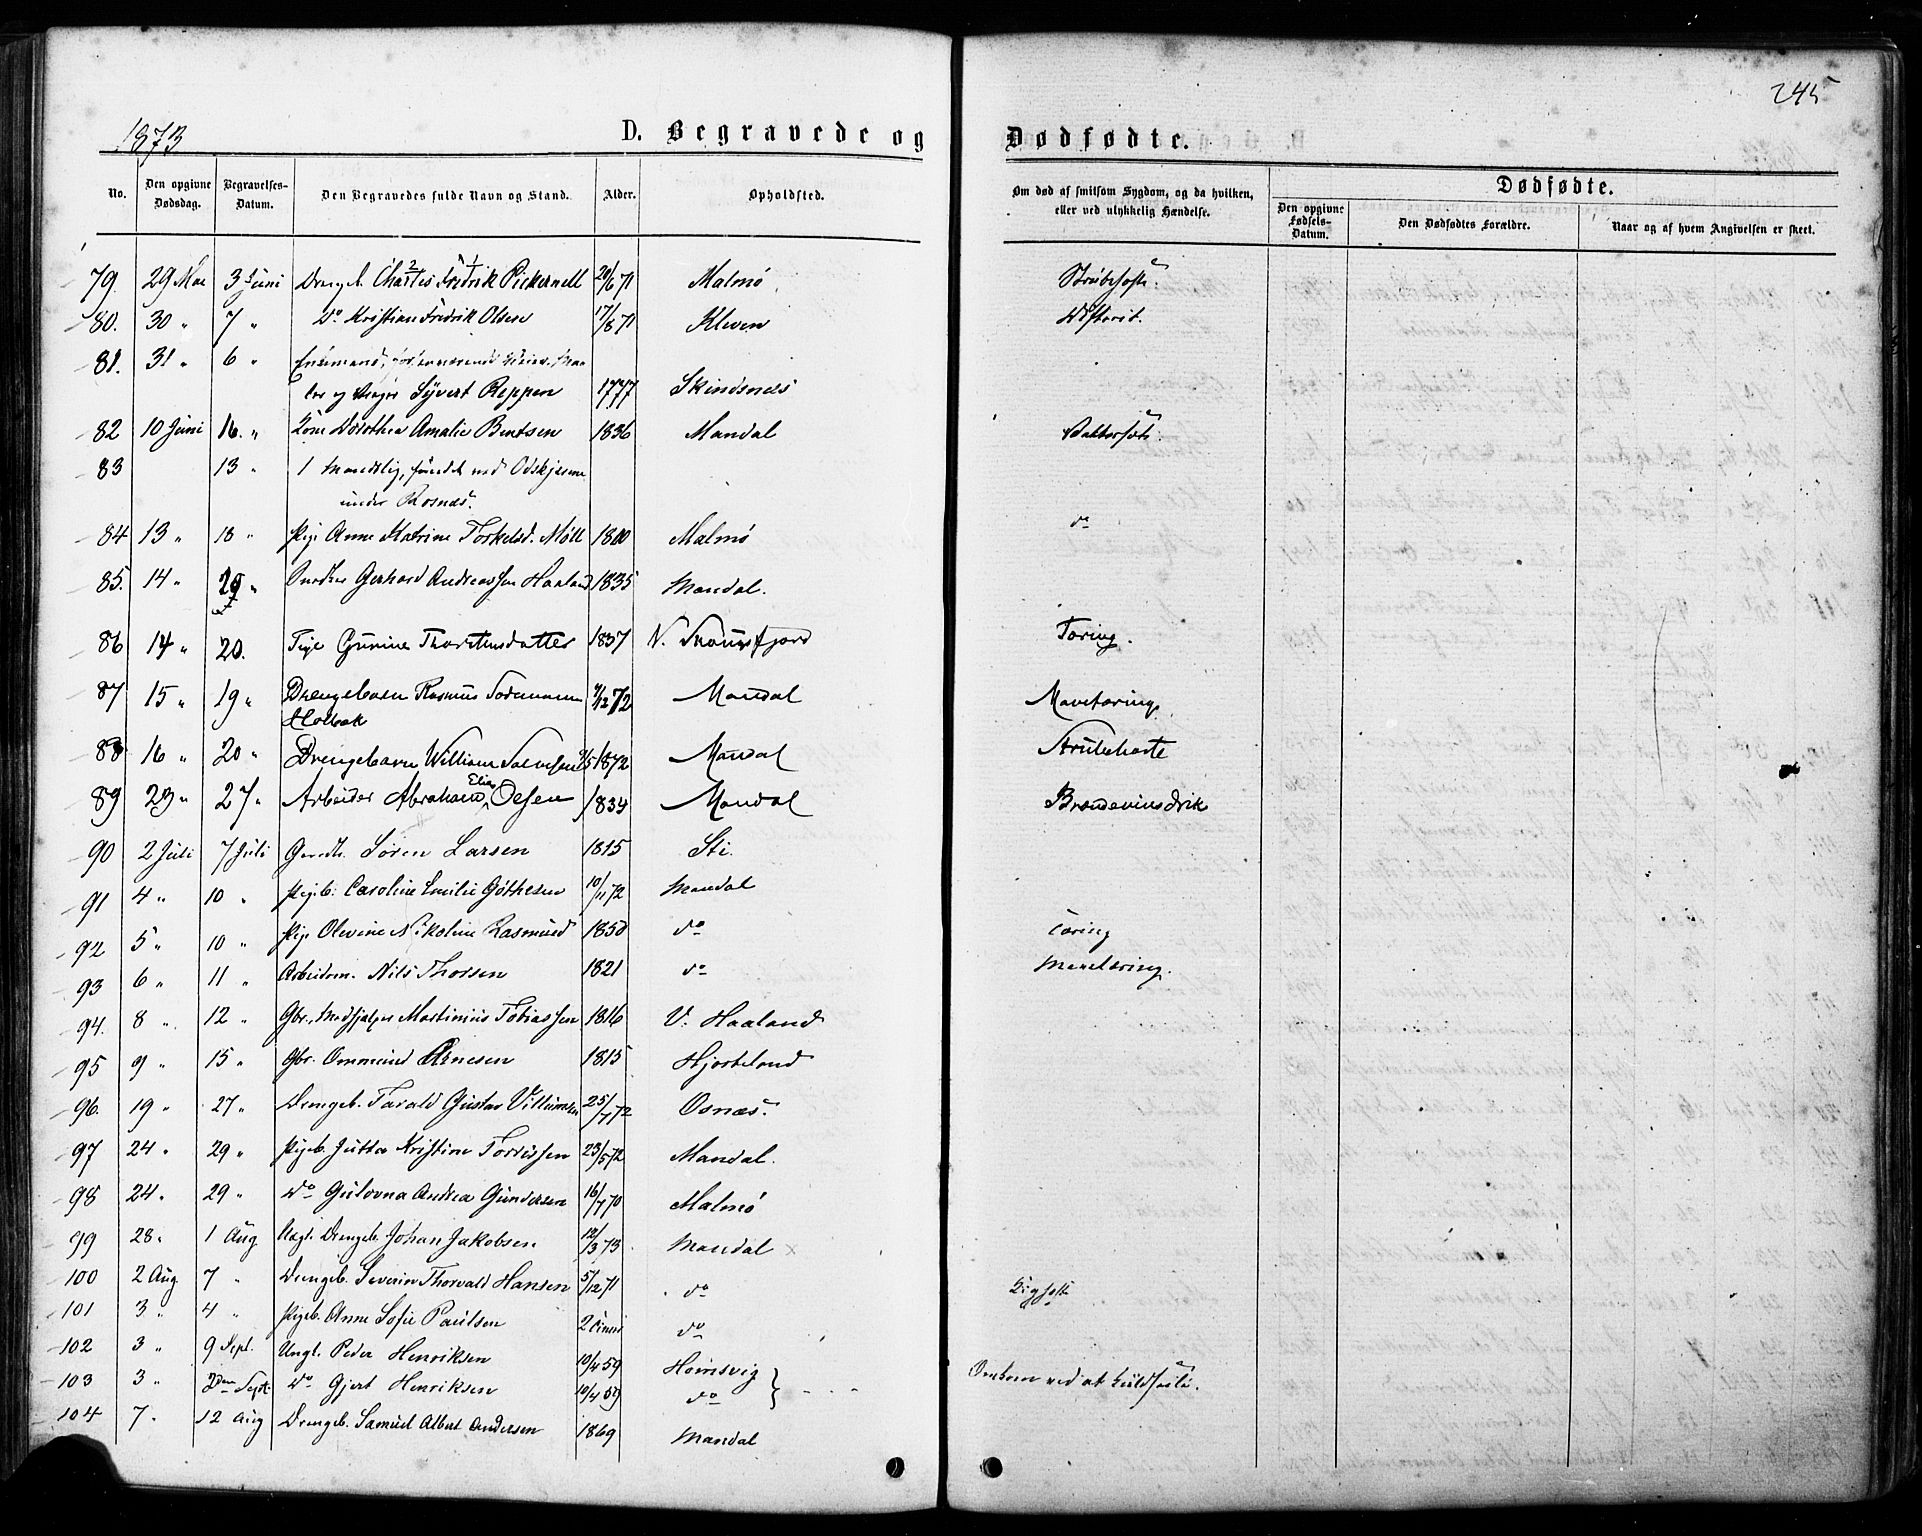 245
1873
D. Begravede og Dødfødte.
No. | Den opgivne Dødsdag. | Begravelses-Datum. | Den Begravedes fulde Navn og Stand. | Alder. | Opholdsted. | Om død af smitsom Sygdom, og da hvilken, eller ved ulykkelig Hændelse. | Dødfødte. | Den opgivne Fødsels-Datum. | Den Dødfødtes Forældre. | Naar og af hvem Angivelsen er skeet.
79. | 29 Mai | 3 Juni | Drengeb. Charles Fredrik Pickernell | 20/6 71 | Malmø | Strubehoste.
80. | 30 " | 7 " | Do Kristian Fredrik Olsen | 17/8 71 | Kleven | Difterit.
81. | 31 " | 6 " | Enkemand,
og Sivert Reppen | 1777 | Skindsnes
82 | 10 Juni | 16. " | Kone Dorothea Amalie Bentsen | 1836 | Mandal
83 | 13 " | 1 Mandslig, fundet ved Odskjærene
under Rosnæs.
84 | 13 " | 18 " | Pige Anne Katrine Torkelsd. Møll | 1800 | Malmø | do
85. | 14 " | 20 " | Gerhard Andreassen Haaland | 1835 | Mandal.
86 | 14 " | 20. | Pige Gurine Thorstensdatter | 1837 | Tæring.
87 | 15 " | 19 " | Drengebarn Rasmus
Holbæk | /12 72 | Mandal | Mavetæring.
88 | 16 " | 20 " | Drengebarn William Salvesen | /5 1872 | Mandal | Strubehoste
89 | 23 " | 27 " | Arbeider Abraham Elias Olsen | 1834 | Mandal | Brændeviinsdrik
90 | 2 Juli | 7 Juli | Søren Larsen | 1815 | Sti.
91 | 4 " | 10 " | Pigeb. Caroline Emilie Gøthesen | 10/11 72 | Mandal
92 | 5 " | 10 " | Pige Olevine Nikoline Rasmusd | 1850 | do | Tæring
93 | 6 " | 11 " | Arbeidsm. Nils Thorsen | 1821 | do | Mavetæring.
94. | 8 " | 12 " | Gbr., Medhjælper Martinius Tobiassen | 1816 | V. Haaland
95 | 9 " | 15 " | Gbr. Ommund Arnesen | 1815 | Hjorteland
96. | 19 " | 27 " | Drengeb. Tarald Gustav Villumsen | 25/7 72 | Osnæs.
97 | 24 " | 29 " | Pigeb. Jutta Kristine Torrissen | 23/5 72 | Mandal.
98 | 24 " | 29 " | Do Gulovna Andrea Gundersen | 16/7 70 | Malmø
99 | 28 " | 1 Aug | Uægt. Drengeb. Johan Jakobsen | 12/3 73 | Mandal ×
100 | 2 Aug | 7 " | Drengeb. Severin Thorvald Hansen | 5/12 71 | do | Kighoste
101 | 3 " | 4 " | Pigeb. Anne Sofie Paulsen | do
102 | 3 " | 9 Sept. | Ungk. Peder Henriksen | 10/4 59 | Homsvig
103 | 3 " | 2den Sept. | Do Gjert Henriksen | 10/4 59 | do | Omkom ved at kuldseile.
104 | 7 " | 12 Aug | Drengeb. Samuel Albert Andersen | 1869 | Mandal